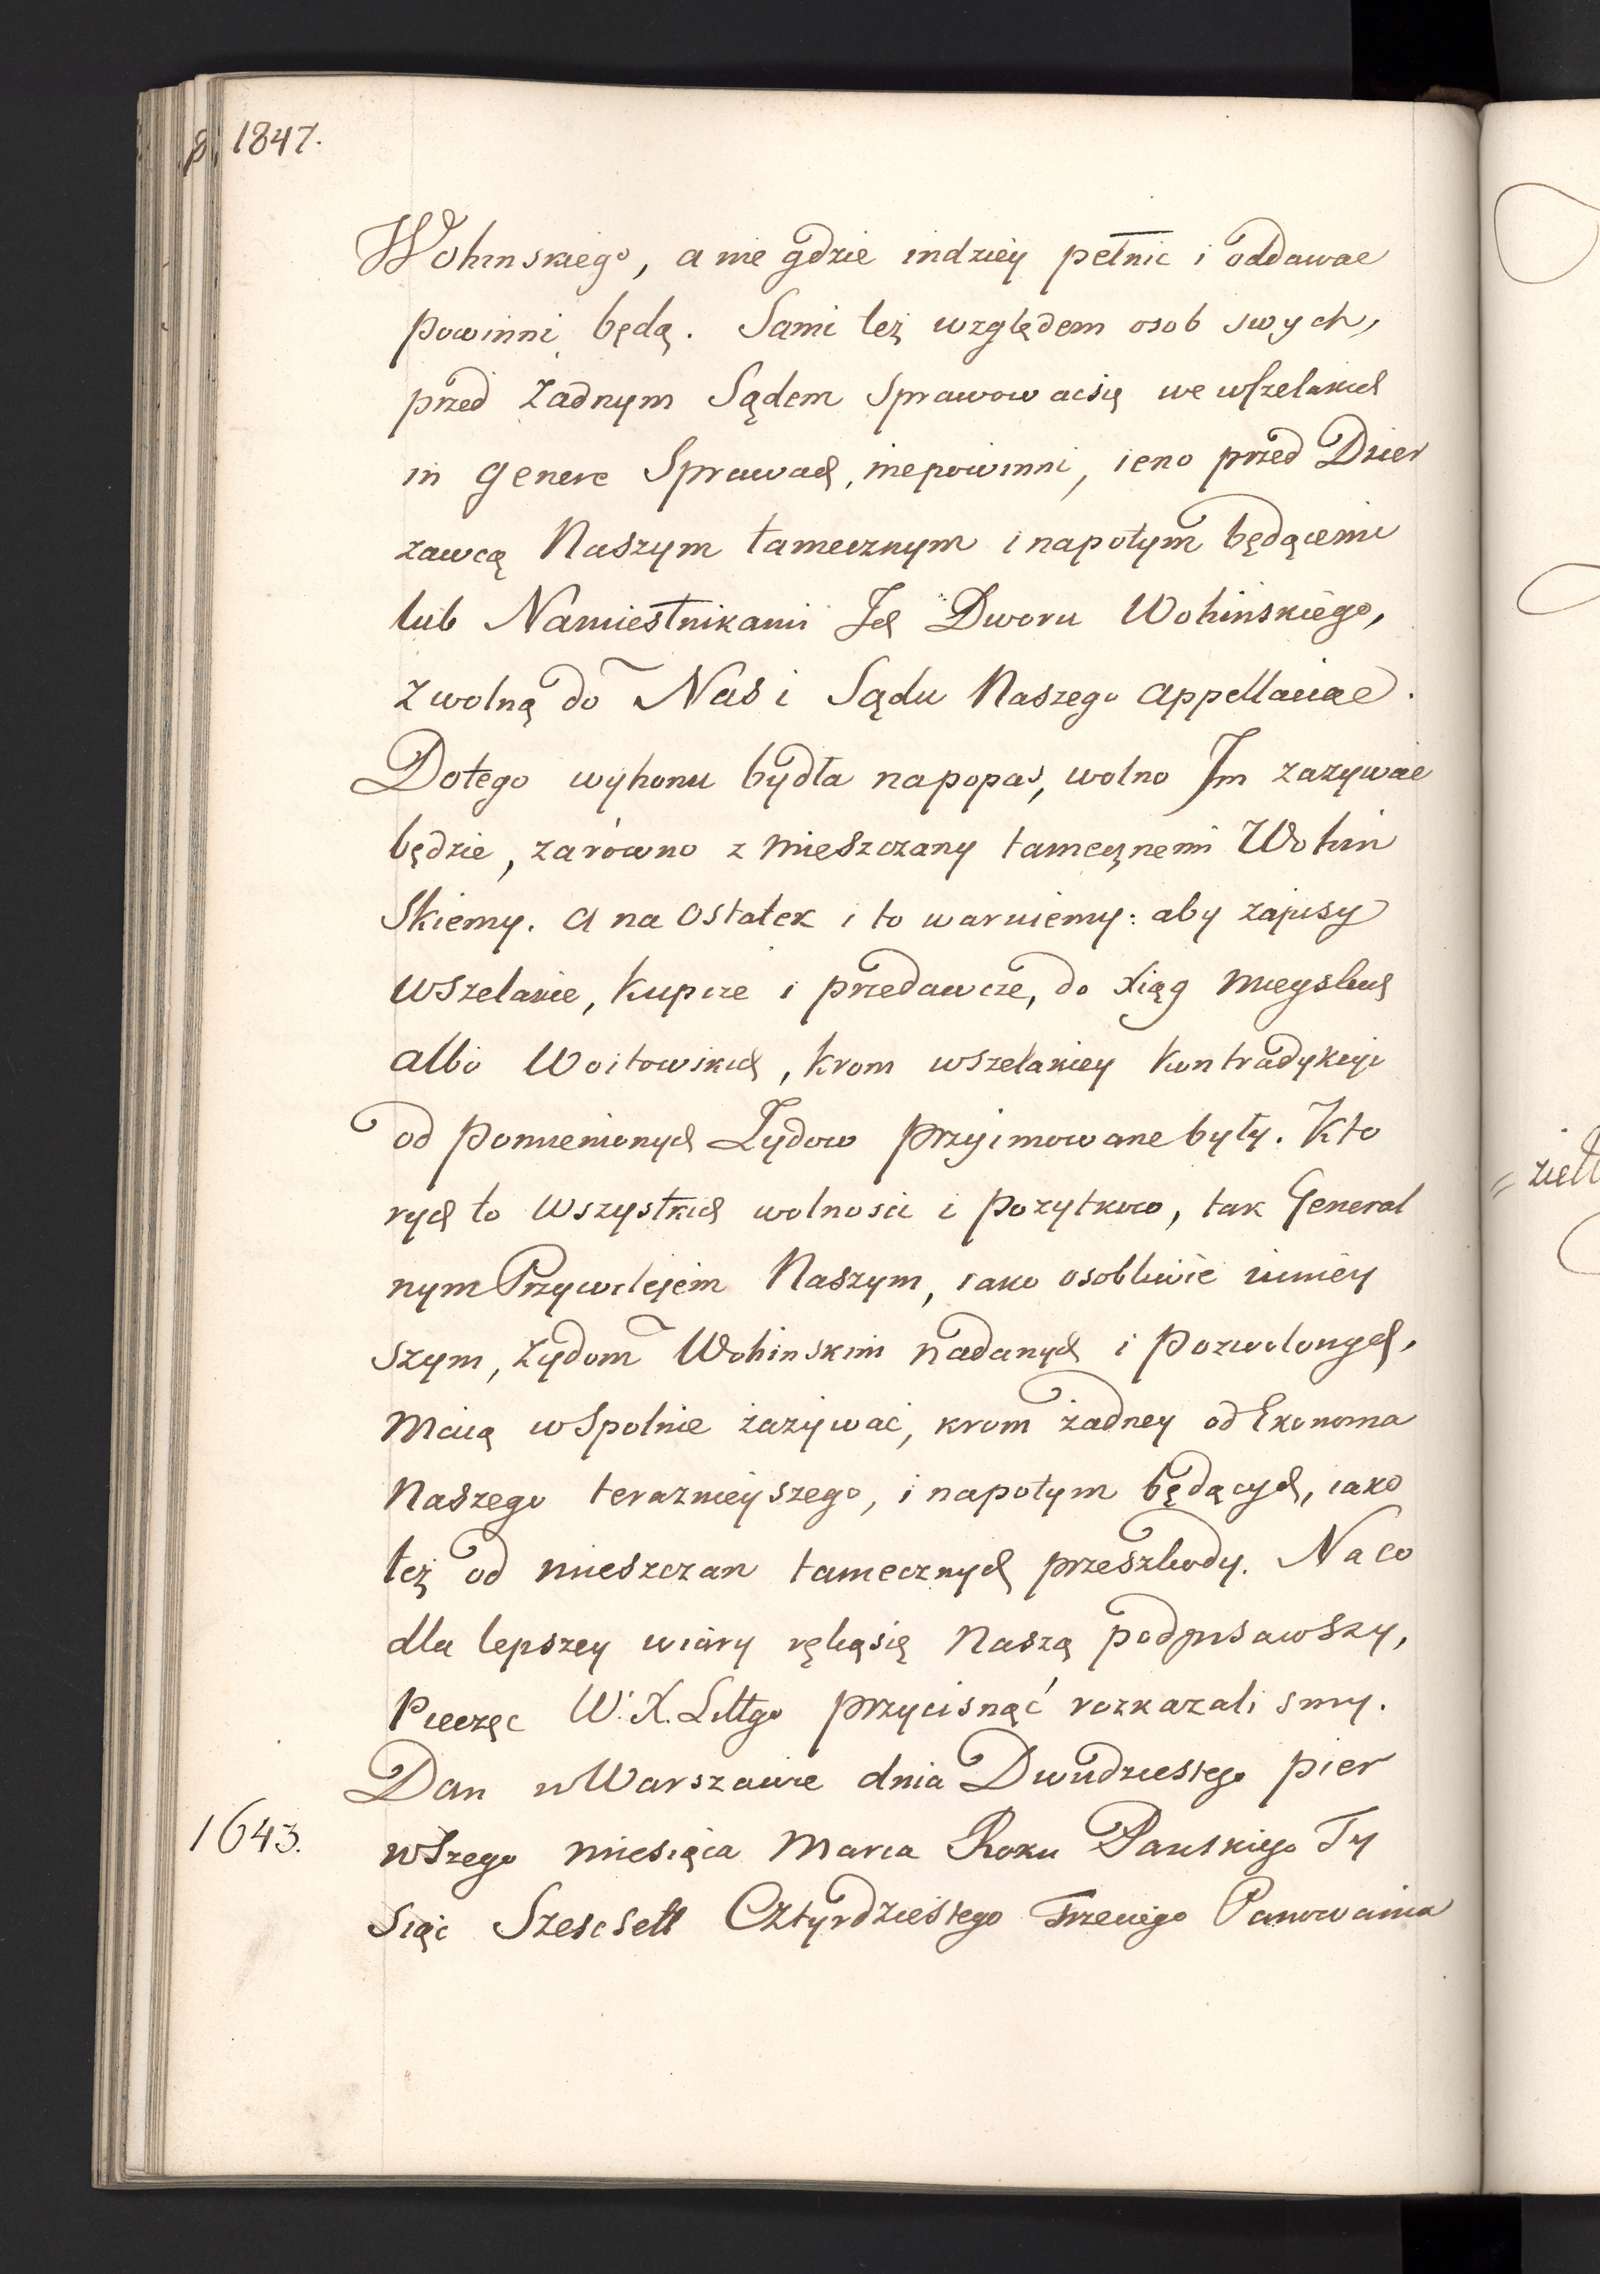 p. 1847.
Wohinskiego, a nie gdzie indziey pełnic i oddawac
powinni będą. Sami też względem osob swych,
przed żadnym Sądem Sprawowacsię we wszelakich
in genere Sprawach, niepowinni, ieno przed Dzier
zawcą Naszym tamecznym i napotym będącemi
lub Namiestnikami Ich Dworu Wohinskiego,
z wolną do Nas i Sądu Naszego appellaciae.
Dotego wyhonu bydła napopas, wolno Im zazywac
będzie, zarówno z mieszczany tamecznemi Wohin
Skiemy. A na Ostatek i to waruiemy: aby zapisy
wszelakie, kupcze i przedawcze, do Xiąg mieyskich
albo Woitowskich, krom wszelakiey kontradykcyi
od pomienionych Żydow przyimowane były. Kto
rych to wszystkich wolnosci i pozytkow, tak General
nym Przywilejem Naszym, iako osobliwie ninieÿ
szym, żydom Wohinskim nadanych i pozwolonych,
Maią wspolnie zażywać, krom żadney od Ekonoma
Naszego teraznieyszego, i napotym będących, iako
też od mieszczan tamecznych przeszkody. Na co
dla lepszey wiary rękąsię Naszą podpisawszy,
Pieczęc W. X. Littgo przycisnąć rozkazali smy.
Dan w Warszawie dnia Dwudziestego pier
1643.
wszego miesiąca Marca Roku Panskiego Ty
siąc Szescsett Cztyrdziestego Trzeciego Panowania
= ziett